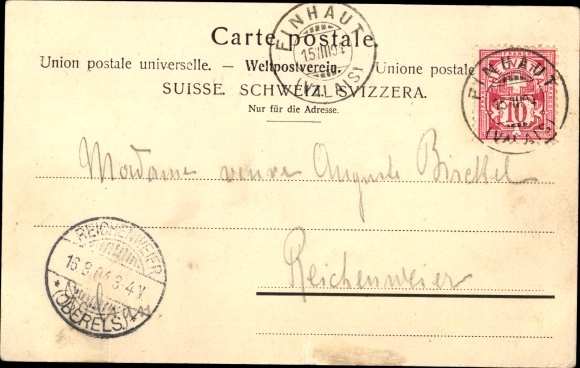 Carte postale.
Union postale universelle. — Weltpostverein. — Unione postale
SUISSE. SCHWEIZ. SVIZZERA.
Nur für die Adresse.
FINHAUT
(VALAIS)
FINHAUT
(VALAIS)
10
Madame veuve Auguste Birckel
Reichenweier
REICHENWEIER
16 8 04 3-4 N
*(OBERELS.)